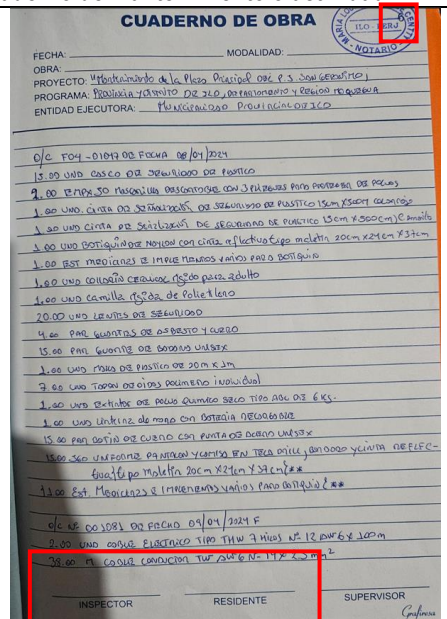 CUADERNO DE OBRA
MARIA
ILO - PERU
NOTARIO
6
FECHA: MODALIDAD:
OBRA:
PROYECTO: "Mantenimiento de la Plaza Principal DEL P.J. SAN GERONIMO,
PROGRAMA: PROVINCIA Y DISTRITO DE ILO, DEPARTAMENTO Y REGION MOQUEGUA
ENTIDAD EJECUTORA: MUNICIPALIDAD PROVINCIAL DE ILO
O/C FO4-01047 DE FECHA 08/04/2024
15.00 UND CASCO DE SEGURIDAD DE PLASTICO
2.00 EMPX.50 MASCARILLA DESCARTABLE CON 3 PLIEGUES PARA PROTECCION DE POLVO
1.00 UND. CINTA DE SEÑALIZACIÓN DE SEGURIDAD DE PLASTICO 15cm X 500m COLOR ROJO
1.00 UND CINTA DE SEÑALIZACIÓN DE SEGURIDAD DE PLASTICO 15cm X 500(m) C AMARILLO
1.00 UND BOTIQUIN DE NAYLON CON cinta reflectiva tipo maletin 20cm x 24cm x 37cm
1.00 EST MEDICINAS E IMPLEMENTOS VARIOS PARA BOTIQUIN
1.00 UND COLLARÍN CERVICAL rígido para adulto
1.00 UND camilla rígida de Polietileno
20.00 UND LENTES DE SEGURIDAD
4.00 PAR GUANTES DE ASBESTO Y CUERO
15.00 PAR GUANTE DE BADANA UNISEX
1.00 UND MALLA DE PLASTICO DE 20m X 1m
7.00 UND TAPON DE OIDOS POLIMERO individual
1.00 UND Extintor DE POLVO QUIMICO SECO TIPO ABC DE 6 KG.
1.00 UND Linterna de mano con BATERIA RECARGABLE
15.00 PAR BOTIN DE CUERO CON PUNTA DE ACERO UNISEX
15.00 UNIFORME PANTALON Y CAMISA EN TELA DRILL, BORDADO Y CINTA REFLEC-
tiva tipo maletin 20cm x 24cm x 37cm {**
1.00 Est. Medicinas E IMPLEMENTOS VARIOS PARA BOTIQUIN {**
O/C Nº 001081 DE FECHA 09/04/2024 F
2.00 UND CABLE ELECTRICO TIPO THW 7 HILOS Nº 12 AWG x 100m
38.00 m CABLE CONDUCTOR TW AWG N- 14 x 2.5 mm²
INSPECTOR RESIDENTE SUPERVISOR